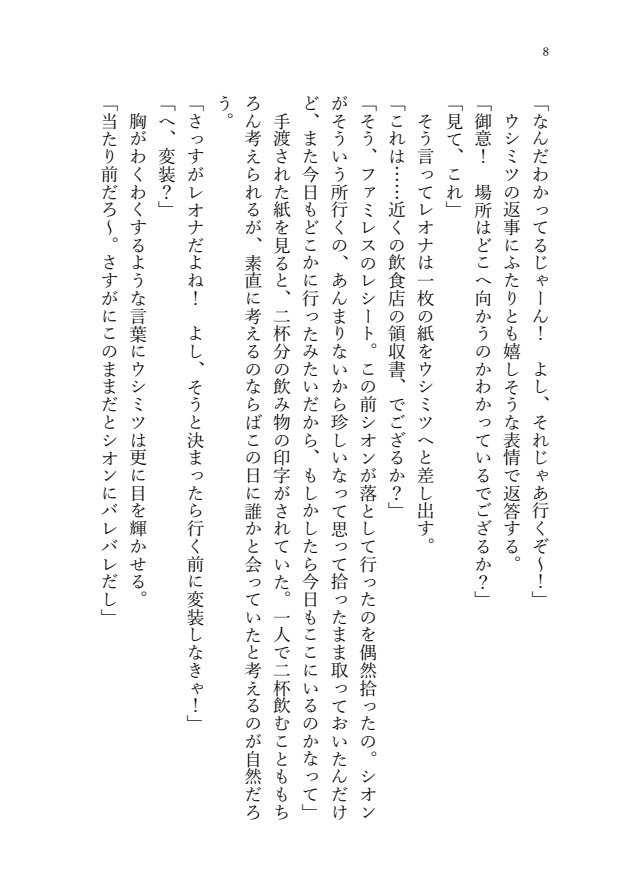 8
「なんだわかってるじゃーん！　よし、それじゃあ行くぞ～！」
ウシミツの返事にふたりとも嬉しそうな表情で返答する。
「御意！　場所はどこへ向かうのかわかっているでござるか？」
「見て、これ」
そう言ってレオナは一枚の紙をウシミツへと差し出す。
「これは……近くの飲食店の領収書、でござるか？」
「そう、ファミレスのレシート。この前シオンが落として行ったのを偶然拾ったの。シオン
がそういう所行くの、あんまりないから珍しいなって思って拾ったまま取っておいたんだけ
ど、また今日もどこかに行ったみたいだから、もしかしたら今日もここにいるのかなって」
手渡された紙を見ると、二杯分の飲み物の印字がされていた。一人で二杯飲むことももち
ろん考えられるが、素直に考えるのならばこの日に誰かと会っていたと考えるのが自然だろ
う。
「さっすがレオナだよね！　よし、そうと決まったら行く前に変装しなきゃ！」
「へ、変装？」
胸がわくわくするような言葉にウシミツは更に目を輝かせる。
「当たり前だろ～。さすがにこのままだとシオンにバレバレだし」